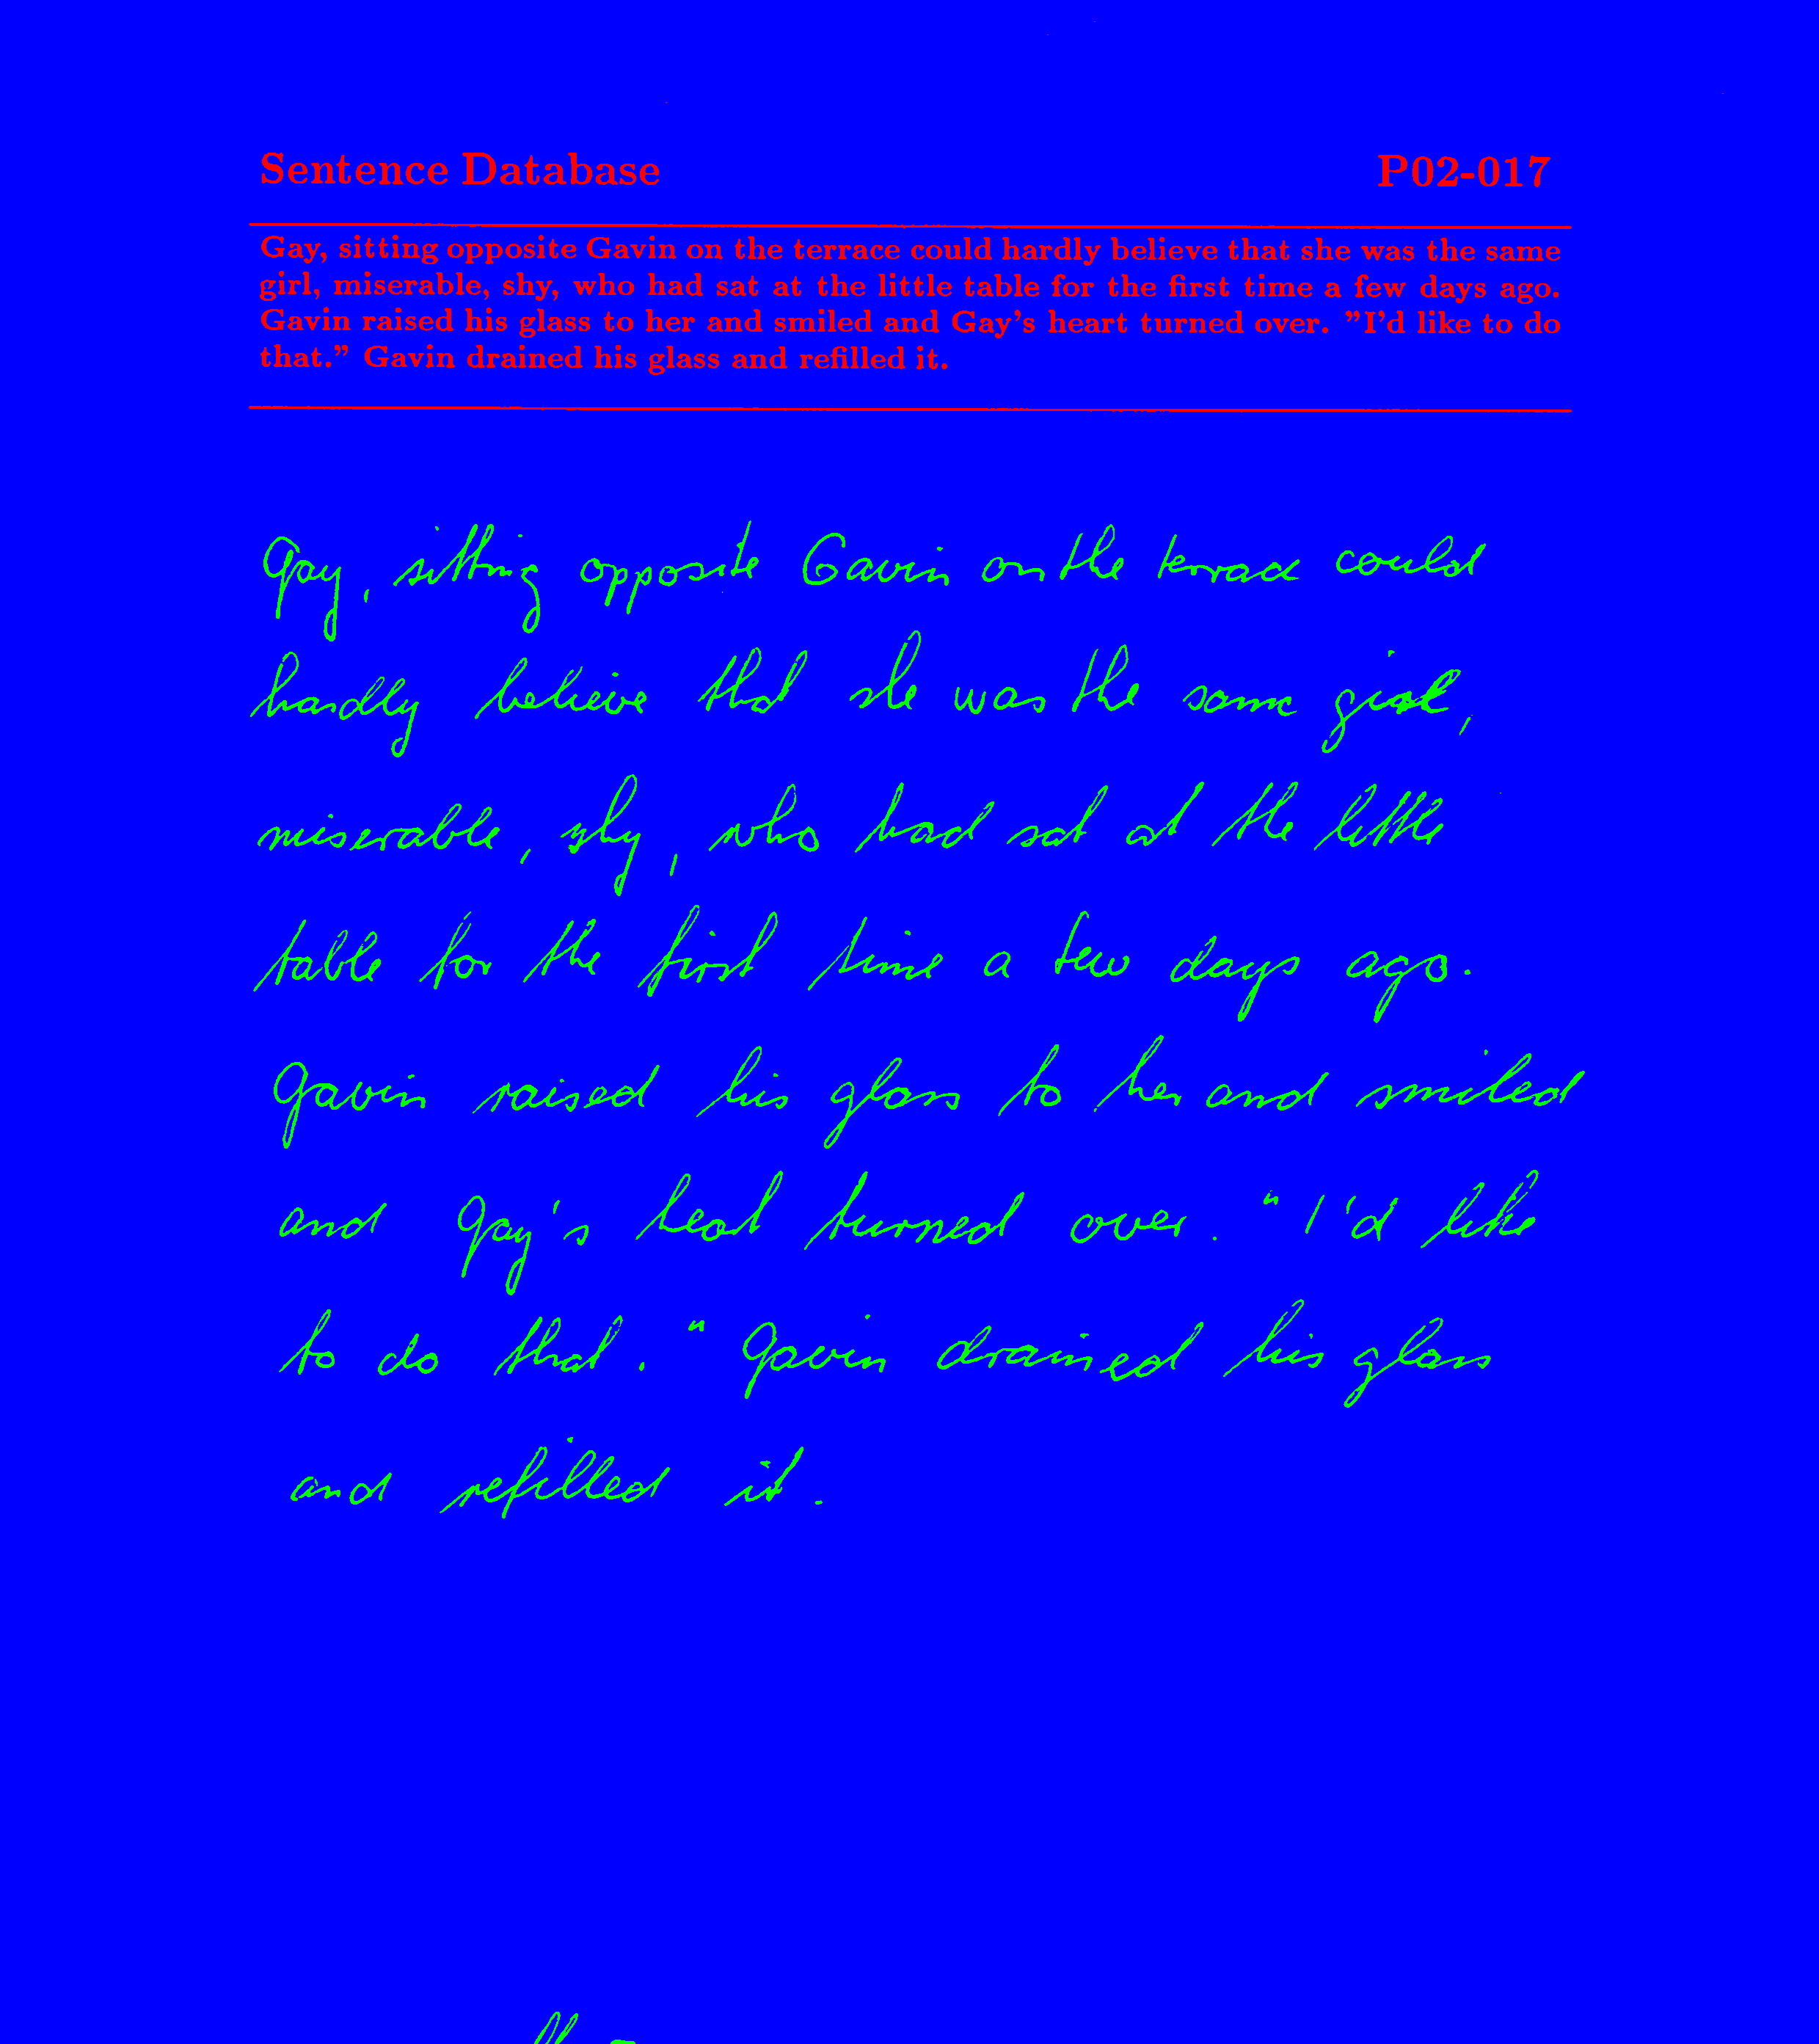 Sentence Database P02-017
Gay, sitting opposite Gavin on the terrace could hardly believe that she was the same
girl, miserable, shy, who had sat at the little table for the first time a few days ago.
Gavin raised his glass to her and smiled and Gay's heart turned over. "I'd like to do
that." Gavin drained his glass and refilled it.
Gay, sitting opposite Gavin on the terrace could
hardly believe that she was the same girl,
miserable, shy, who had sat at the little
table for the first time a few days ago.
Gavin raised his glass to her and smiled
and Gay's heart turned over. "I'd like
to do that." Gavin drained his glass
and refilled it.